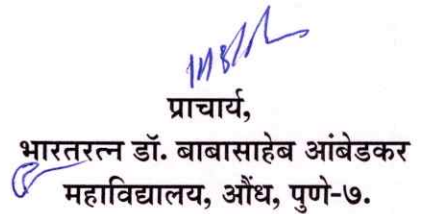 प्राचार्य,
भारतरत्न डॉ. बाबासाहेब आंबेडकर
महाविद्यालय, औंध, पुणे-७.